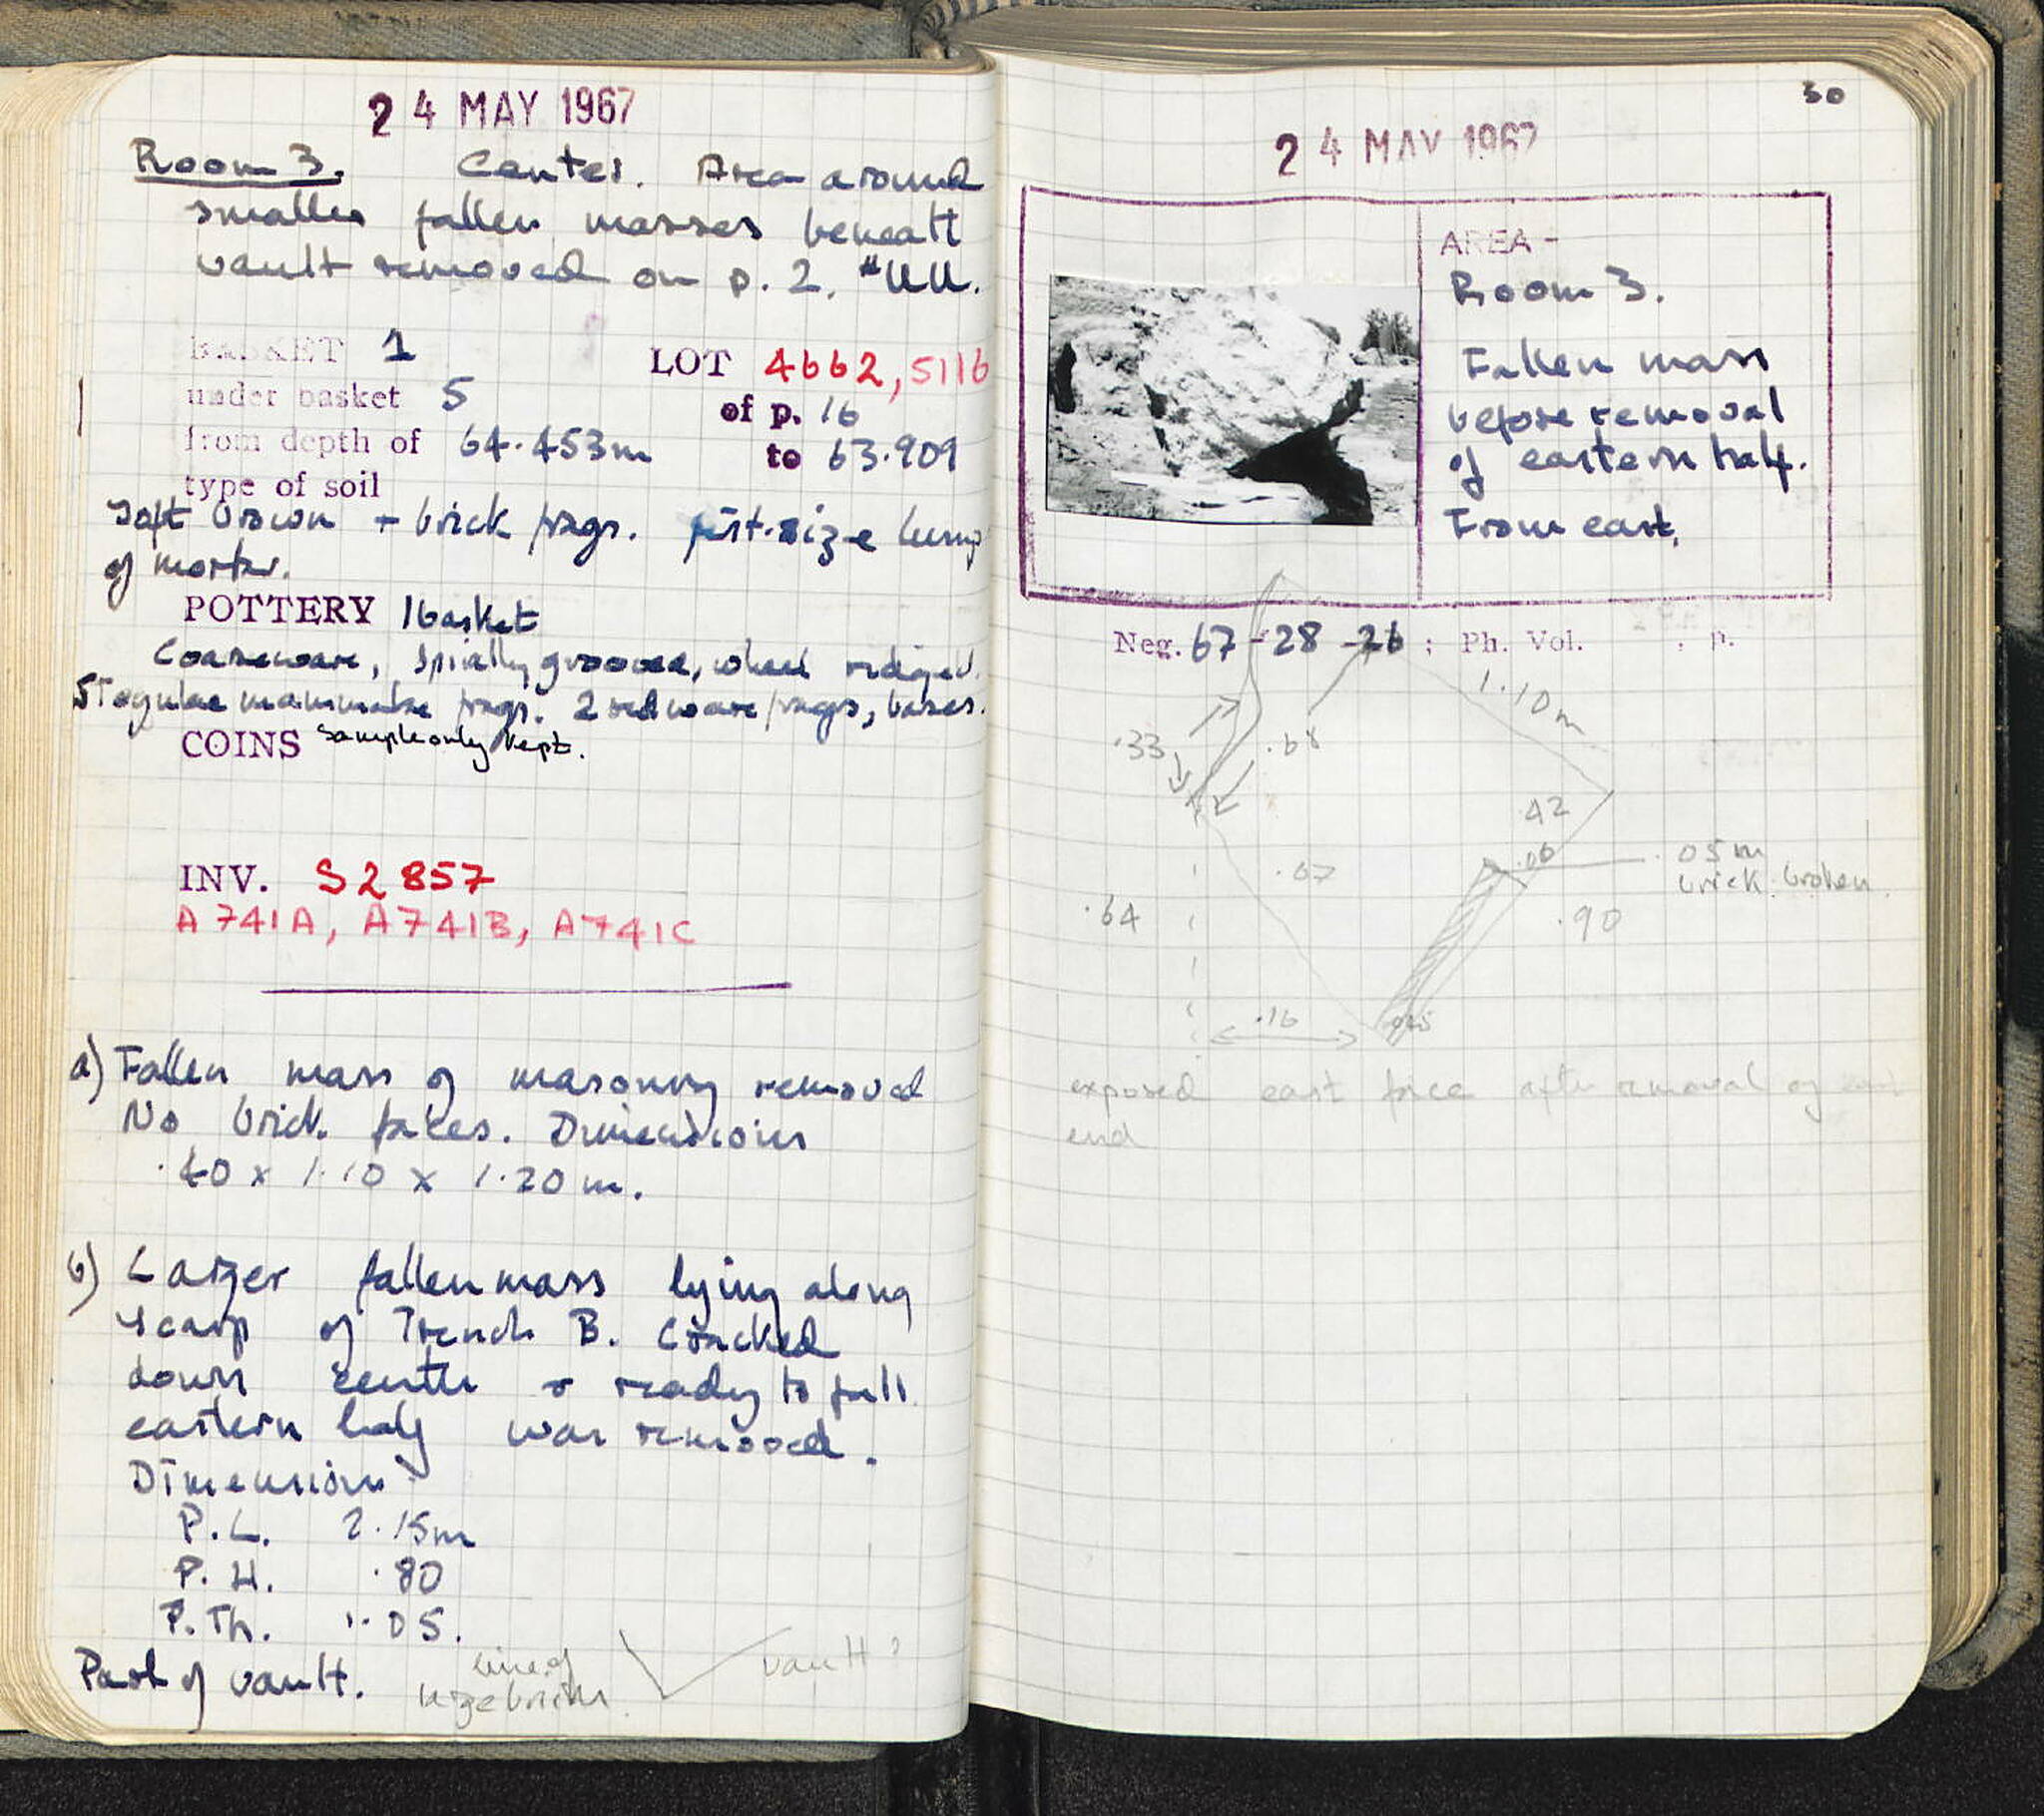 24 MAY 1967
Room 3. Center. Area around
smaller fallen masses beneath
vault removed on p. 2. #UU.
BASKET 1 LOT 4662, 5116
under basket 5 of p. 16
from depth of 64.453m to 63.909
type of soil
Soft brown + brick frags. fist-size lump
of mortar.
POTTERY 1 basket
Coarseware, spirally grooved, wheel ridged.
5 Tegulae mammatae frags. 2 redware frags, bases.
COINS Sample only kept.
INV. S2857
A741A, A741B, A741C
a) Fallen mass of masonry removed
No brick faces. Dimensions
.40 x 1.10 x 1.20 m.
b) Larger fallen mass lying along
scarp of Trench B. Cracked
down centre & ready to fall
eastern half was removed.
Dimensions
P.L. 2.15m
P.H. .80
P.Th. 1.05.
Part of vault. line of
large bricks vault?
30
24 MAY 1967
AREA -
Room 3.
Fallen mass
before removal
of eastern half.
From east.
Neg. 67-28-26; Ph. Vol. , p.
1.10m
.33 .68
.42
.06 .05m
brick broken.
.67
.64 .90
.16
exposed east face after removal of east
end